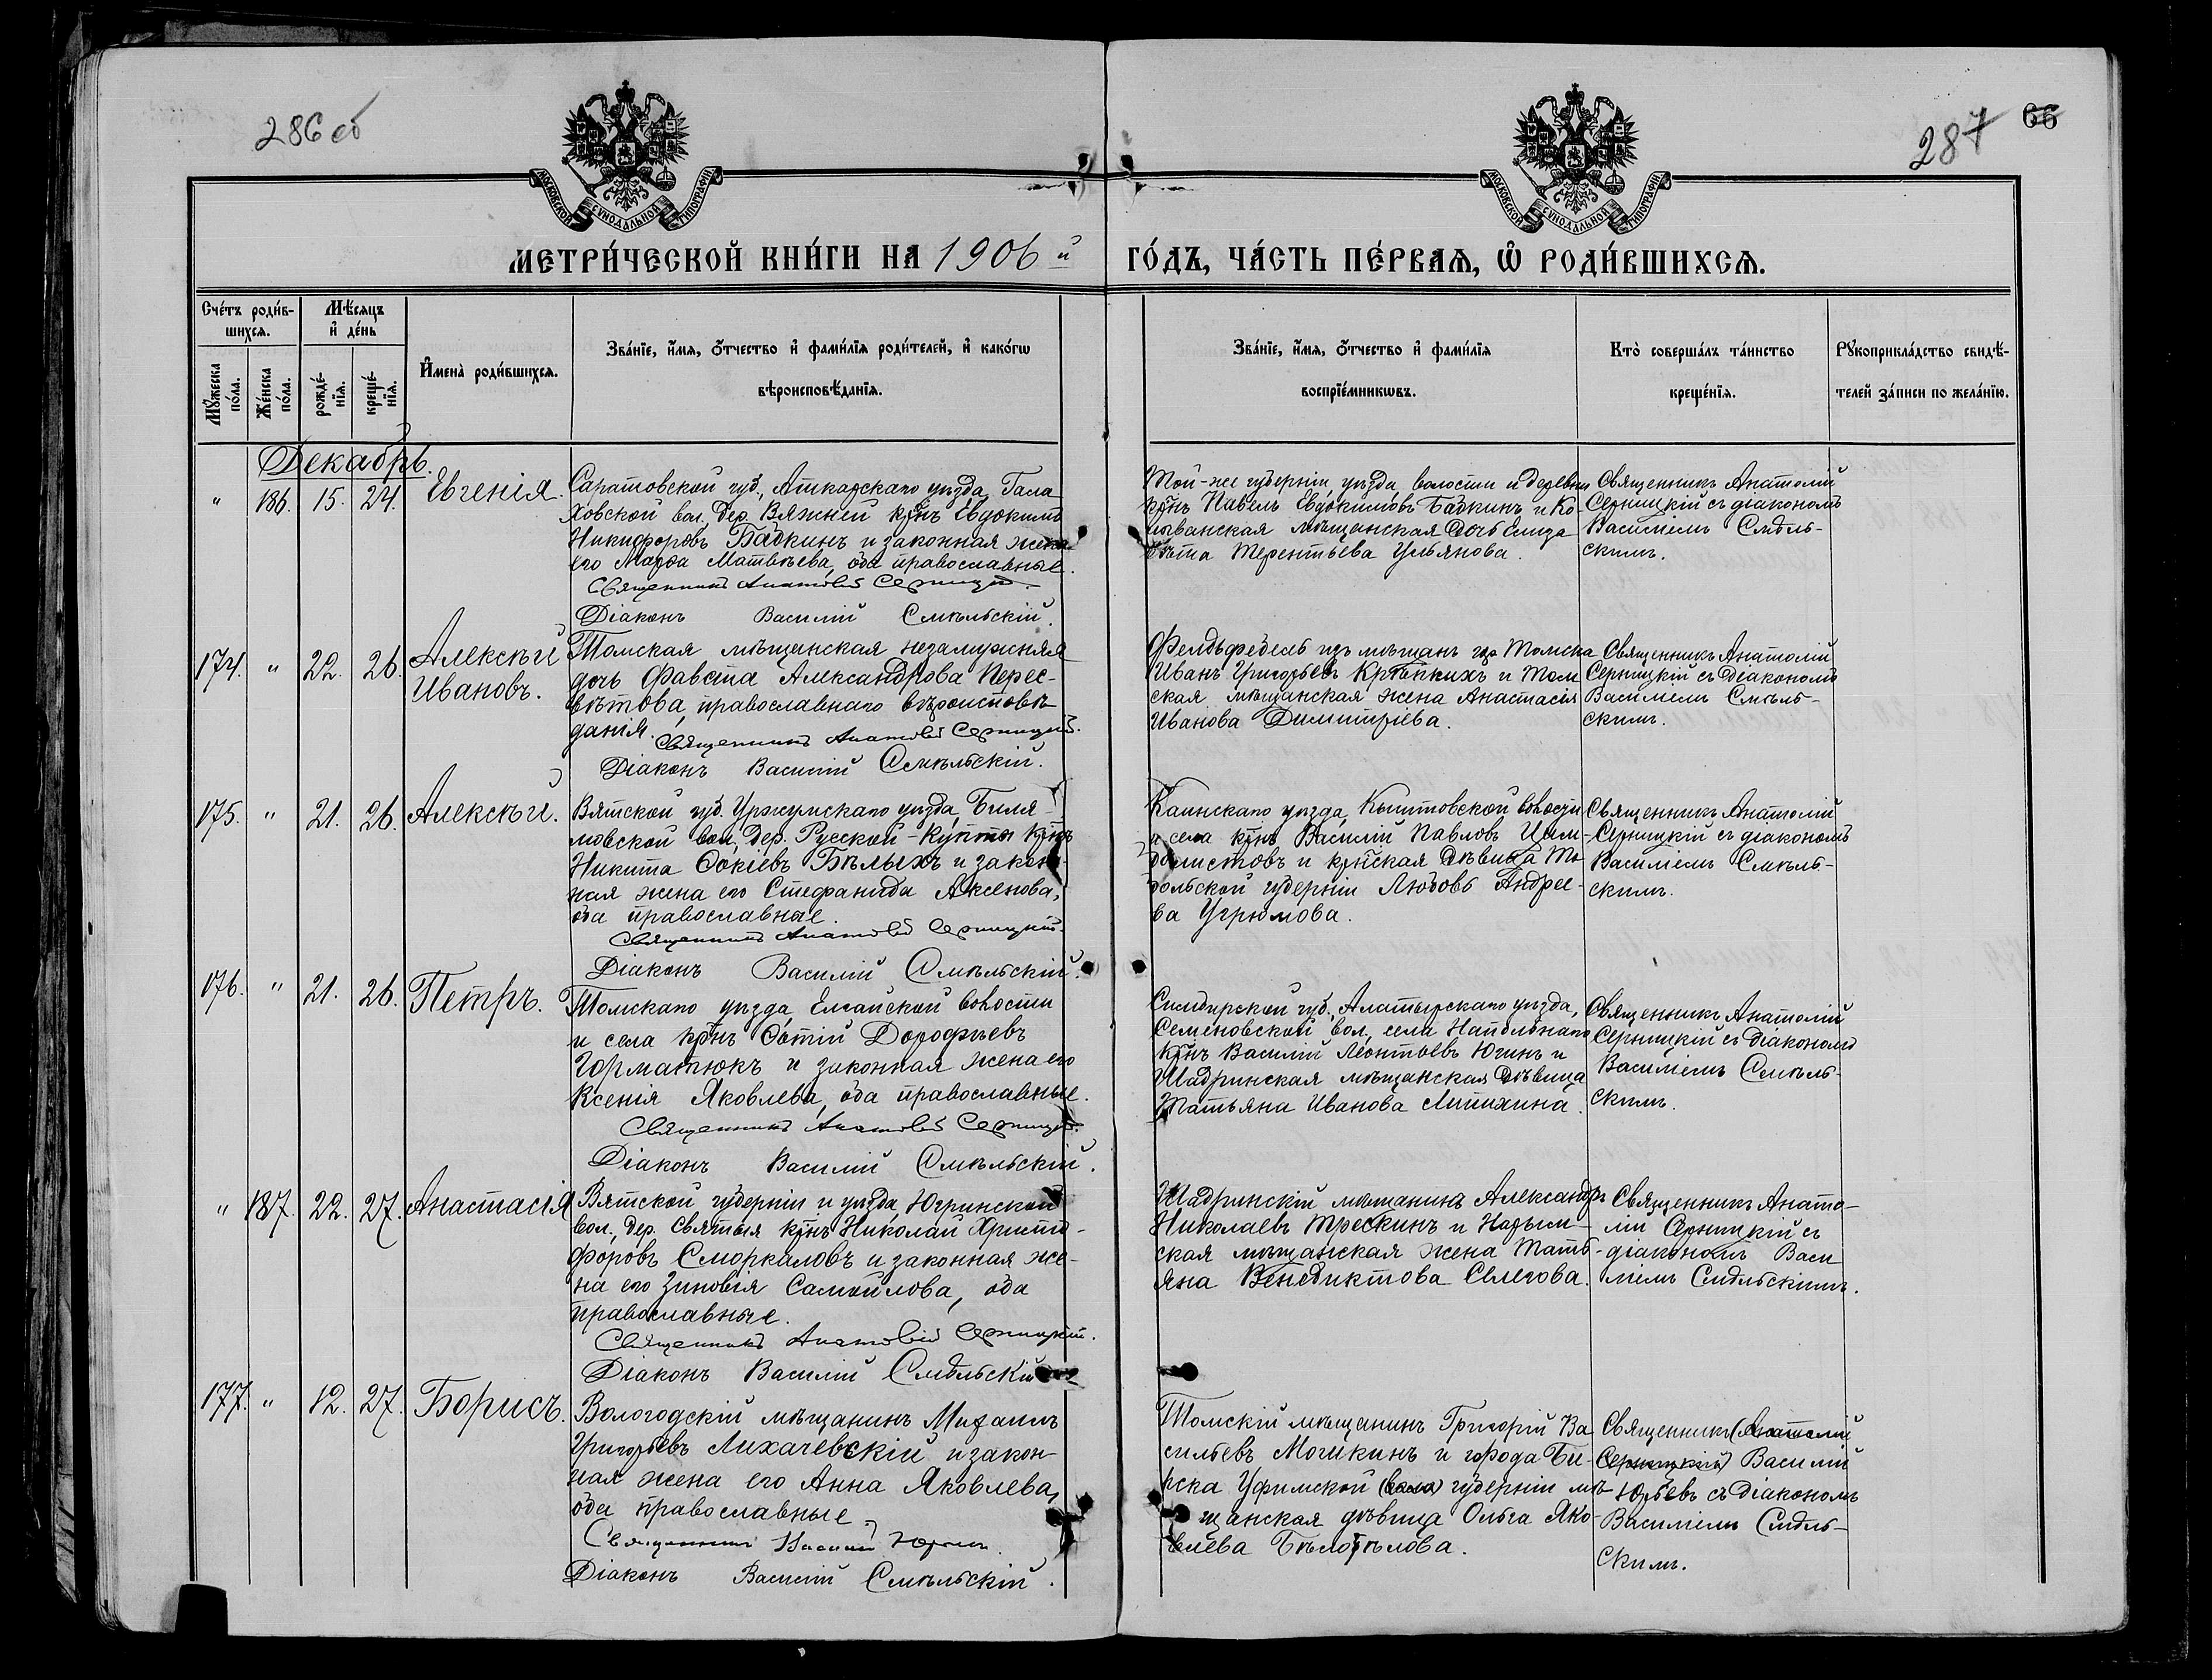 286 об
287
66
МОСКОВСКОЙ СѴНОДАЛЬНОЙ ТИПОГРАФІИ
МОСКОВСКОЙ СѴНОДАЛЬНОЙ ТИПОГРАФІИ
МЕТРИ́ЧЕСКОЙ КНИ́ГИ НА 1906й ГО́ДЪ, ЧА́СТЬ ПЕ́РВАѦ, Ѡ РОДИ́ВШИХСѦ.
Сче́тъ роди́в-
шихсѧ.
Мѣ́сяцъ
и҆ де́нь
Мꙋ́жеска по́ла.
Же́нска по́ла.
рожде́-нїѧ.
креще́-нїѧ.
И҆мена̀ роди́вшихсѧ.
Зва́нїе, и҆́мѧ, ѻ҆́тчество и҆ фами́лїѧ роди́телей, и҆ како́гѡ
вѣроисповѣ́данїѧ.
Зва́нїе, и҆́мѧ, ѻ҆́тчество и҆ фами́лїѧ
воспрїе́мникѡвъ.
Кто̀ соверша́лъ та́инство
креще́нїѧ.
Рꙋкоприкла́дство свидѣ́-
телей за́писи по жела́нїю.
Декабрь.
" 186. 15. 24. Евгенія.
Саратовской губ., Аткарскаго уѣзда, Гала
ховской вол., Дер. Вяжней крнъ Евдокимъ
Никифоровъ Бадкинъ и законная жена
его Марѳа Матвѣева, оба православные.
Священникъ Анатолій Серницкій.
Діаконъ Василій Смѣльскій.
Той-же губерніи, уѣзда, волости и деревни
крнъ Павелъ Евдокимовъ Бадкинъ и Ко-
лыванская мѣщанская дочь Елиза
вета Терентьева Ульянова.
Священникъ Анатолій
Серницкій съ діакономъ
Василіемъ Смѣль-
скимъ.
174. " 22. 26. Алексѣй
Ивановъ.
Томская мѣщанская незамужняя
дочь Фавста Александрова Перес-
вѣтова, православнаго вѣроисповѣ
данія.
Священникъ Анатолій Серницкій.
Діаконъ Василій Смѣльскій.
Фельдфебель изъ мѣщанъ гор. Томска
Иванъ Григорьевъ Крѣпкихъ и Том
ская мѣщанская жена Анастасія
Иванова Димитріева.
Священникъ Анатолій
Серницкій съ діакономъ
Василіемъ Смѣль-
скимъ.
175. " 21. 26. Алексѣй.
Вятской губ. Уржумскаго уѣзда, Биля-
мовской вол., Дер. Русской-Купты крнъ
Никита Ѳокіевъ Бѣлыхъ и закон-
ная жена его Стефанида Аксенова,
оба православные.
Священникъ Анатолій Серницкій.
Діаконъ Василій Смѣльскій.
Каинскаго уѣзда, Кыштовской волости
и села крнъ Василій Павловъ
и крнская дѣвица То-
больской губерніи Любовь Андрее-
ва Угрюмова.
Священникъ Анатолій
Серницкій съ діакономъ
Василіемъ Смѣль-
скимъ.
176. " 21. 26. Петръ.
Томскаго уѣзда, Елгайской волости
и села крнъ Фотій Дорофѣевъ
Горматюкъ и законная жена его
Ксенія Яковлева, оба православные.
Священникъ Анатолій Серницкій.
Діаконъ Василій Смѣльскій.
Симбирской губ. Алатырскаго уѣзда,
Семеновской вол., села Напольнаго
крнъ Василій Леонтьевъ Югинъ и
Шадринская мѣщанская дѣвица
Татьяна Иванова Липихина.
Священникъ Анатолій
Серницкій съ діакономъ
Василіемъ Смѣль-
скимъ.
" 187. 22. 27. Анастасія
Вятской губерніи и уѣзда, Югринской
вол., дер. Святыя крнъ Николай Христо-
форовъ Сморкаловъ и законная же-
на его Зиновія Самойлова, оба
православные.
Священникъ Анатолій Серницкій.
Діаконъ Василій Смѣльскій
Шадринскій мѣщанинъ Александръ
Николаевъ Трескинъ и Нарым-
ская мѣщанская жена Тать-
яна Венедиктова Селегова.
Священникъ Анато-
лій Серницкій съ
діакономъ Васи
ліемъ Смѣльскимъ.
177. " 12. 27. Борисъ.
Вологодскій мѣщанинъ Михаилъ
Григорьевъ Лихачевскій и закон-
ная жена его Анна Яковлева,
оба православные
Священникъ Василій Юрьевъ.
Діаконъ Василій Смѣльскій.
Томскій мѣщанинъ Григорій Ва
сильевъ Мошкинъ и города Би-
рска Уфимской губерніи мѣ-
щанская дѣвица Ольга Яко-
влева Бѣлотѣлова.
Священникъ (Анатолій
Серницкій) Василій
Юрьевъ съ діакономъ
Василіемъ Смѣль-
скимъ.